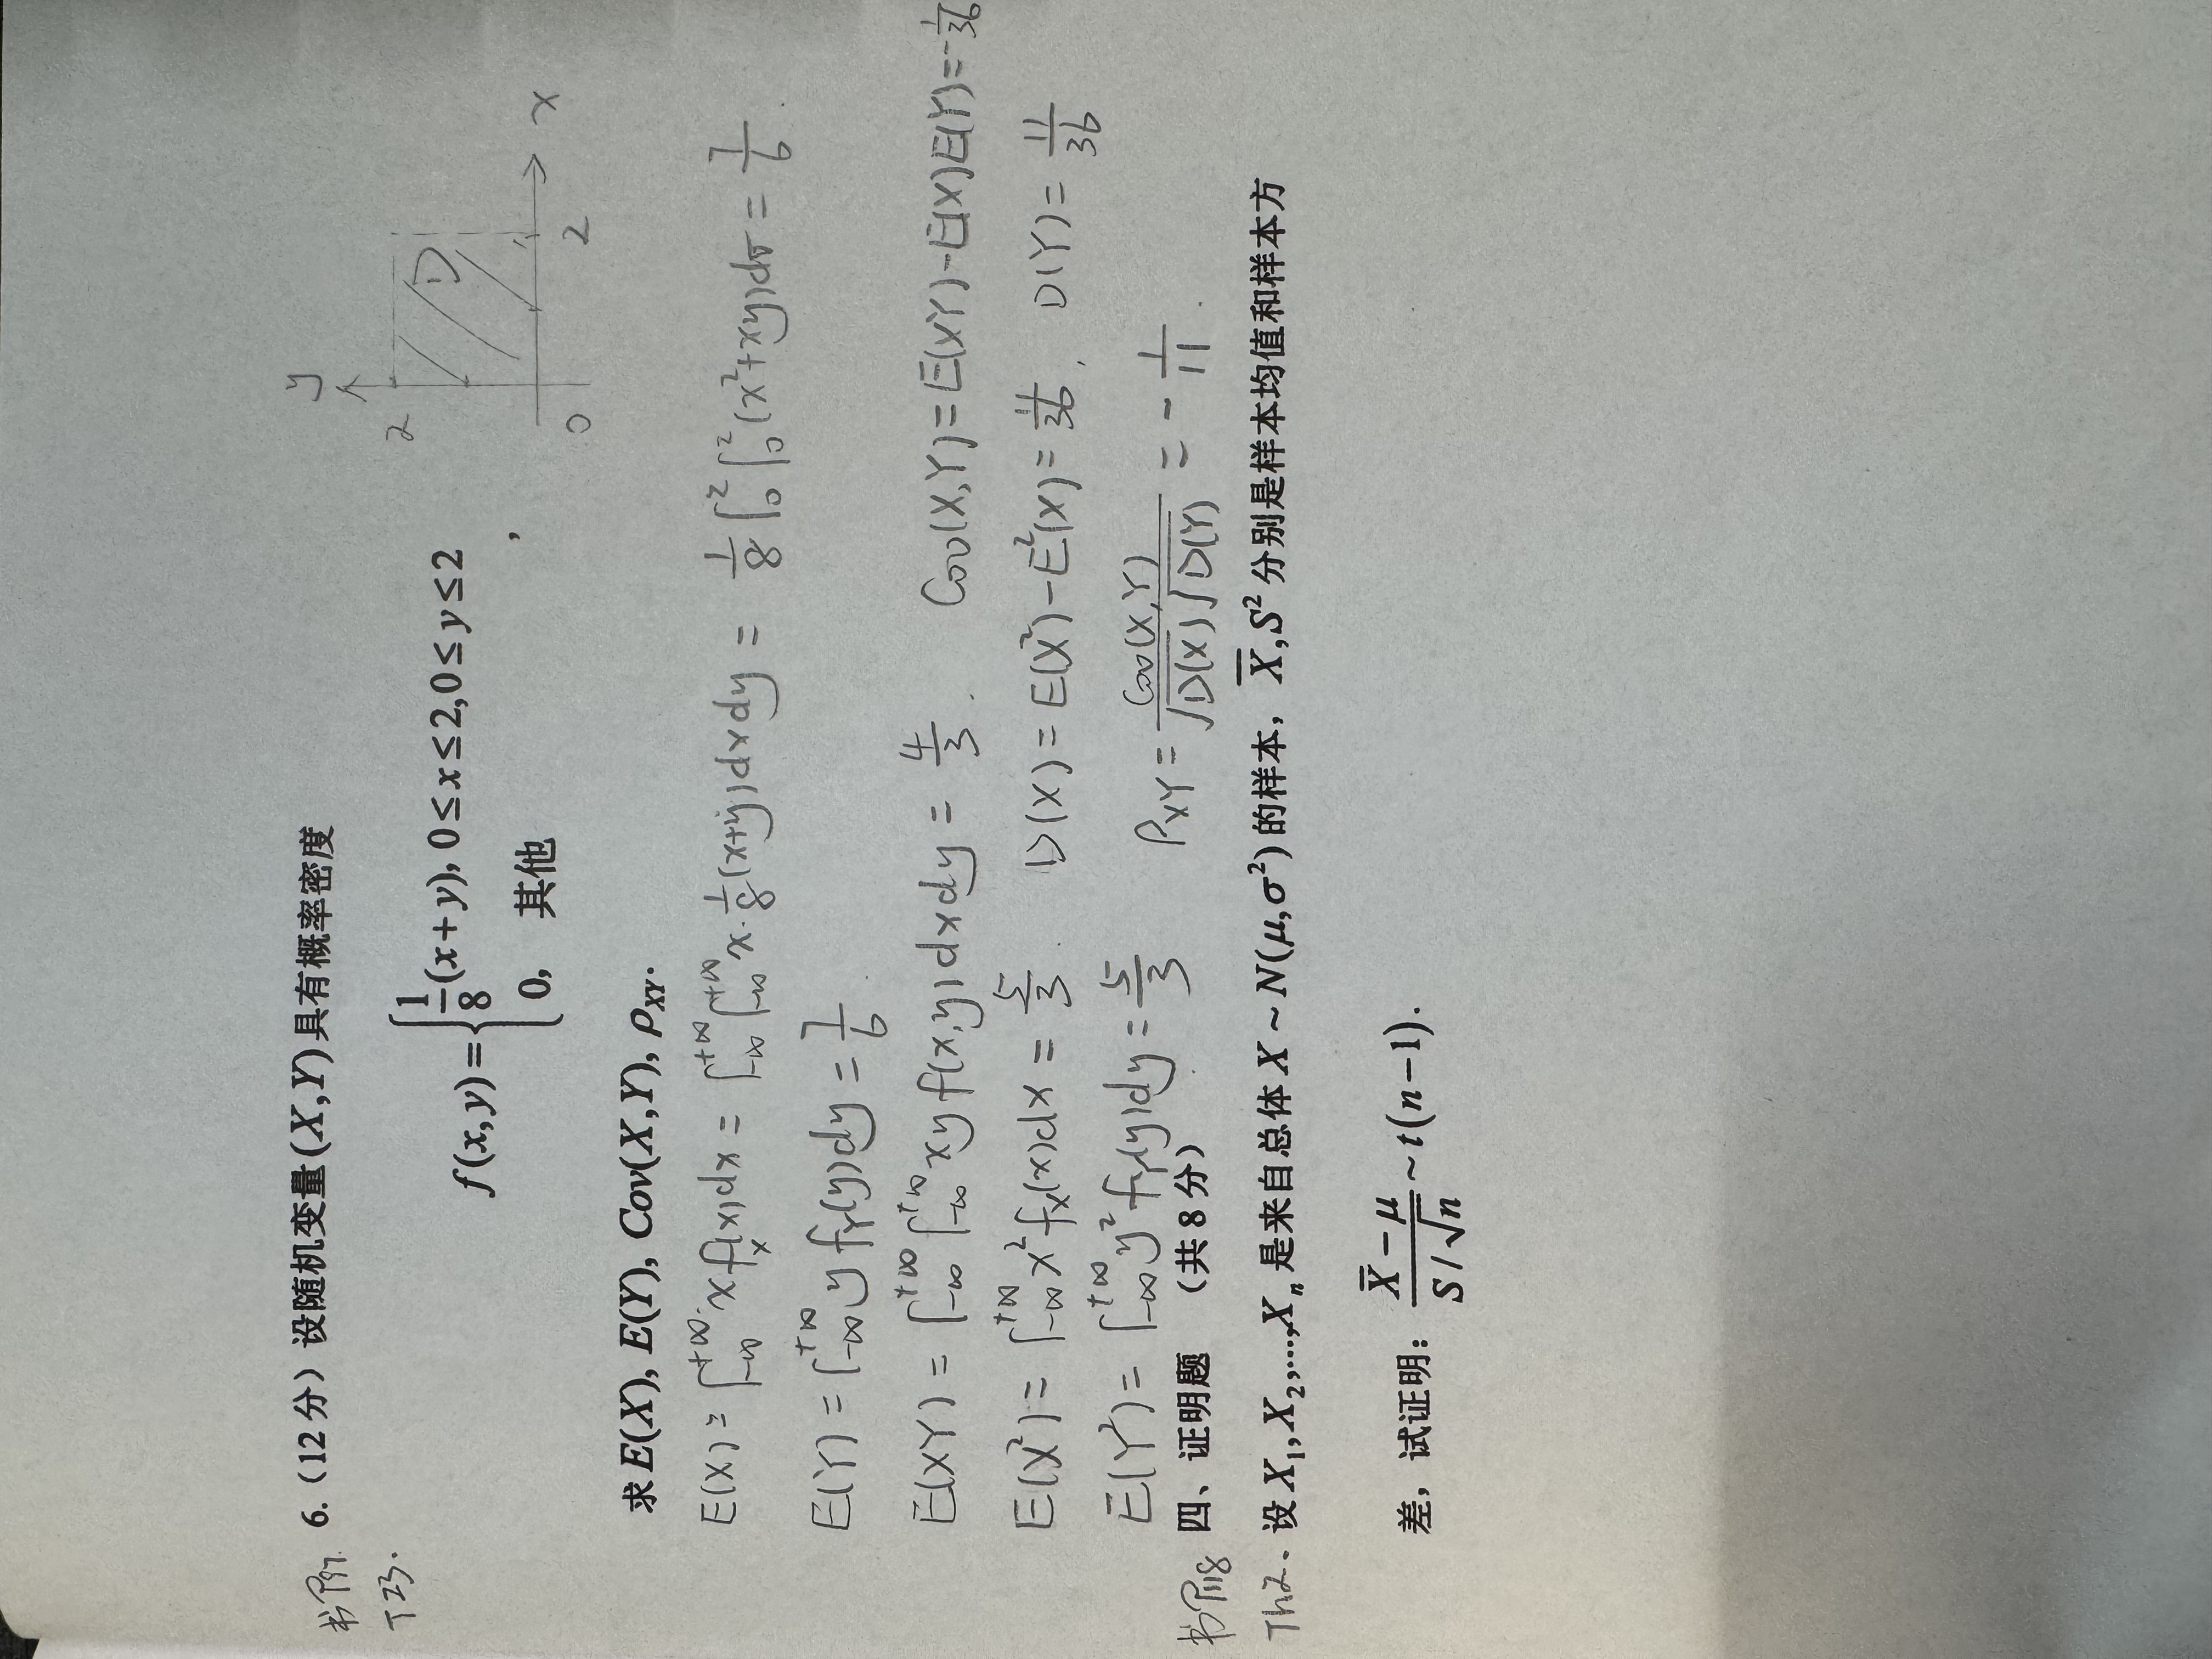 书P97. 6.（12 分）设随机变量(X,Y)具有概率密度
T23.
f(x,y)={ 1/8(x+y), 0≤x≤2,0≤y≤2
0, 其他 ,
y
2 D
0 2 x
求E(X), E(Y), Cov(X,Y), ρ_XY.
E(X) = ∫_{-∞}^{+∞} x f_X(x)dx = ∫_{-∞}^{+∞}∫_{-∞}^{+∞} x·1/8(x+y)dxdy = 1/8∫_0^2∫_0^2(x²+xy)dσ = 7/6.
E(Y) = ∫_{-∞}^{+∞} y f_Y(y)dy = 7/6.
E(XY) = ∫_{-∞}^{+∞}∫_{-∞}^{+∞} xy f(x,y)dxdy = 4/3. Cov(X,Y)=E(XY)-E(X)E(Y)=-1/36
E(X²)= ∫_{-∞}^{+∞} x² f_X(x)dx = 5/3. D(X) = E(X²)-E²(X)= 11/36, D(Y)= 11/36
E(Y²)= ∫_{-∞}^{+∞} y² f_Y(y)dy = 5/3. ρ_XY = Cov(X,Y)/(√D(X)√D(Y)) = -1/11.
书P118 四、证明题 （共 8 分）
Th2. 设 X₁,X₂,...,Xₙ 是来自总体 X ~ N(μ,σ²) 的样本，X̄,S² 分别是样本均值和样本方
差，试证明：(X̄-μ)/(S/√n) ~ t(n-1).